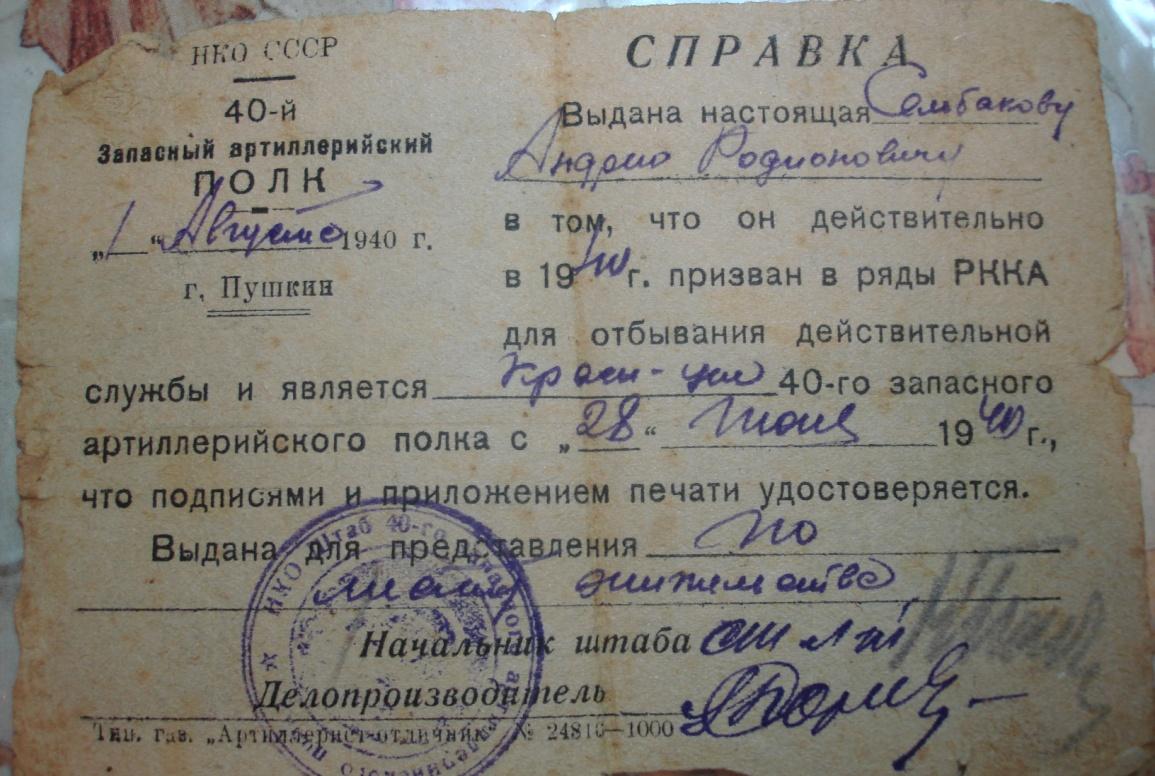 НКО СССР
40-й
Запасный артиллерийский
ПОЛК
„1“ Августа 1940 г.
г. Пушкин
СПРАВКА
Выдана настоящая Сембакову
Андрею Родионовичу
в том, что он действительно
в 1940 г. призван в ряды РККА
для отбывания действительной
службы и является красн-цем 40-го запасного
артиллерийского полка с „28“ Июля 1940 г.,
что подписями и приложением печати удостоверяется.
Выдана для представления по
месту жительства
Начальник штаба
Делопроизводитель
Тип. газ. „Артиллерист-отличник“ № 24810—1000
НКО Штаб 40-го запасного артиллерийского п